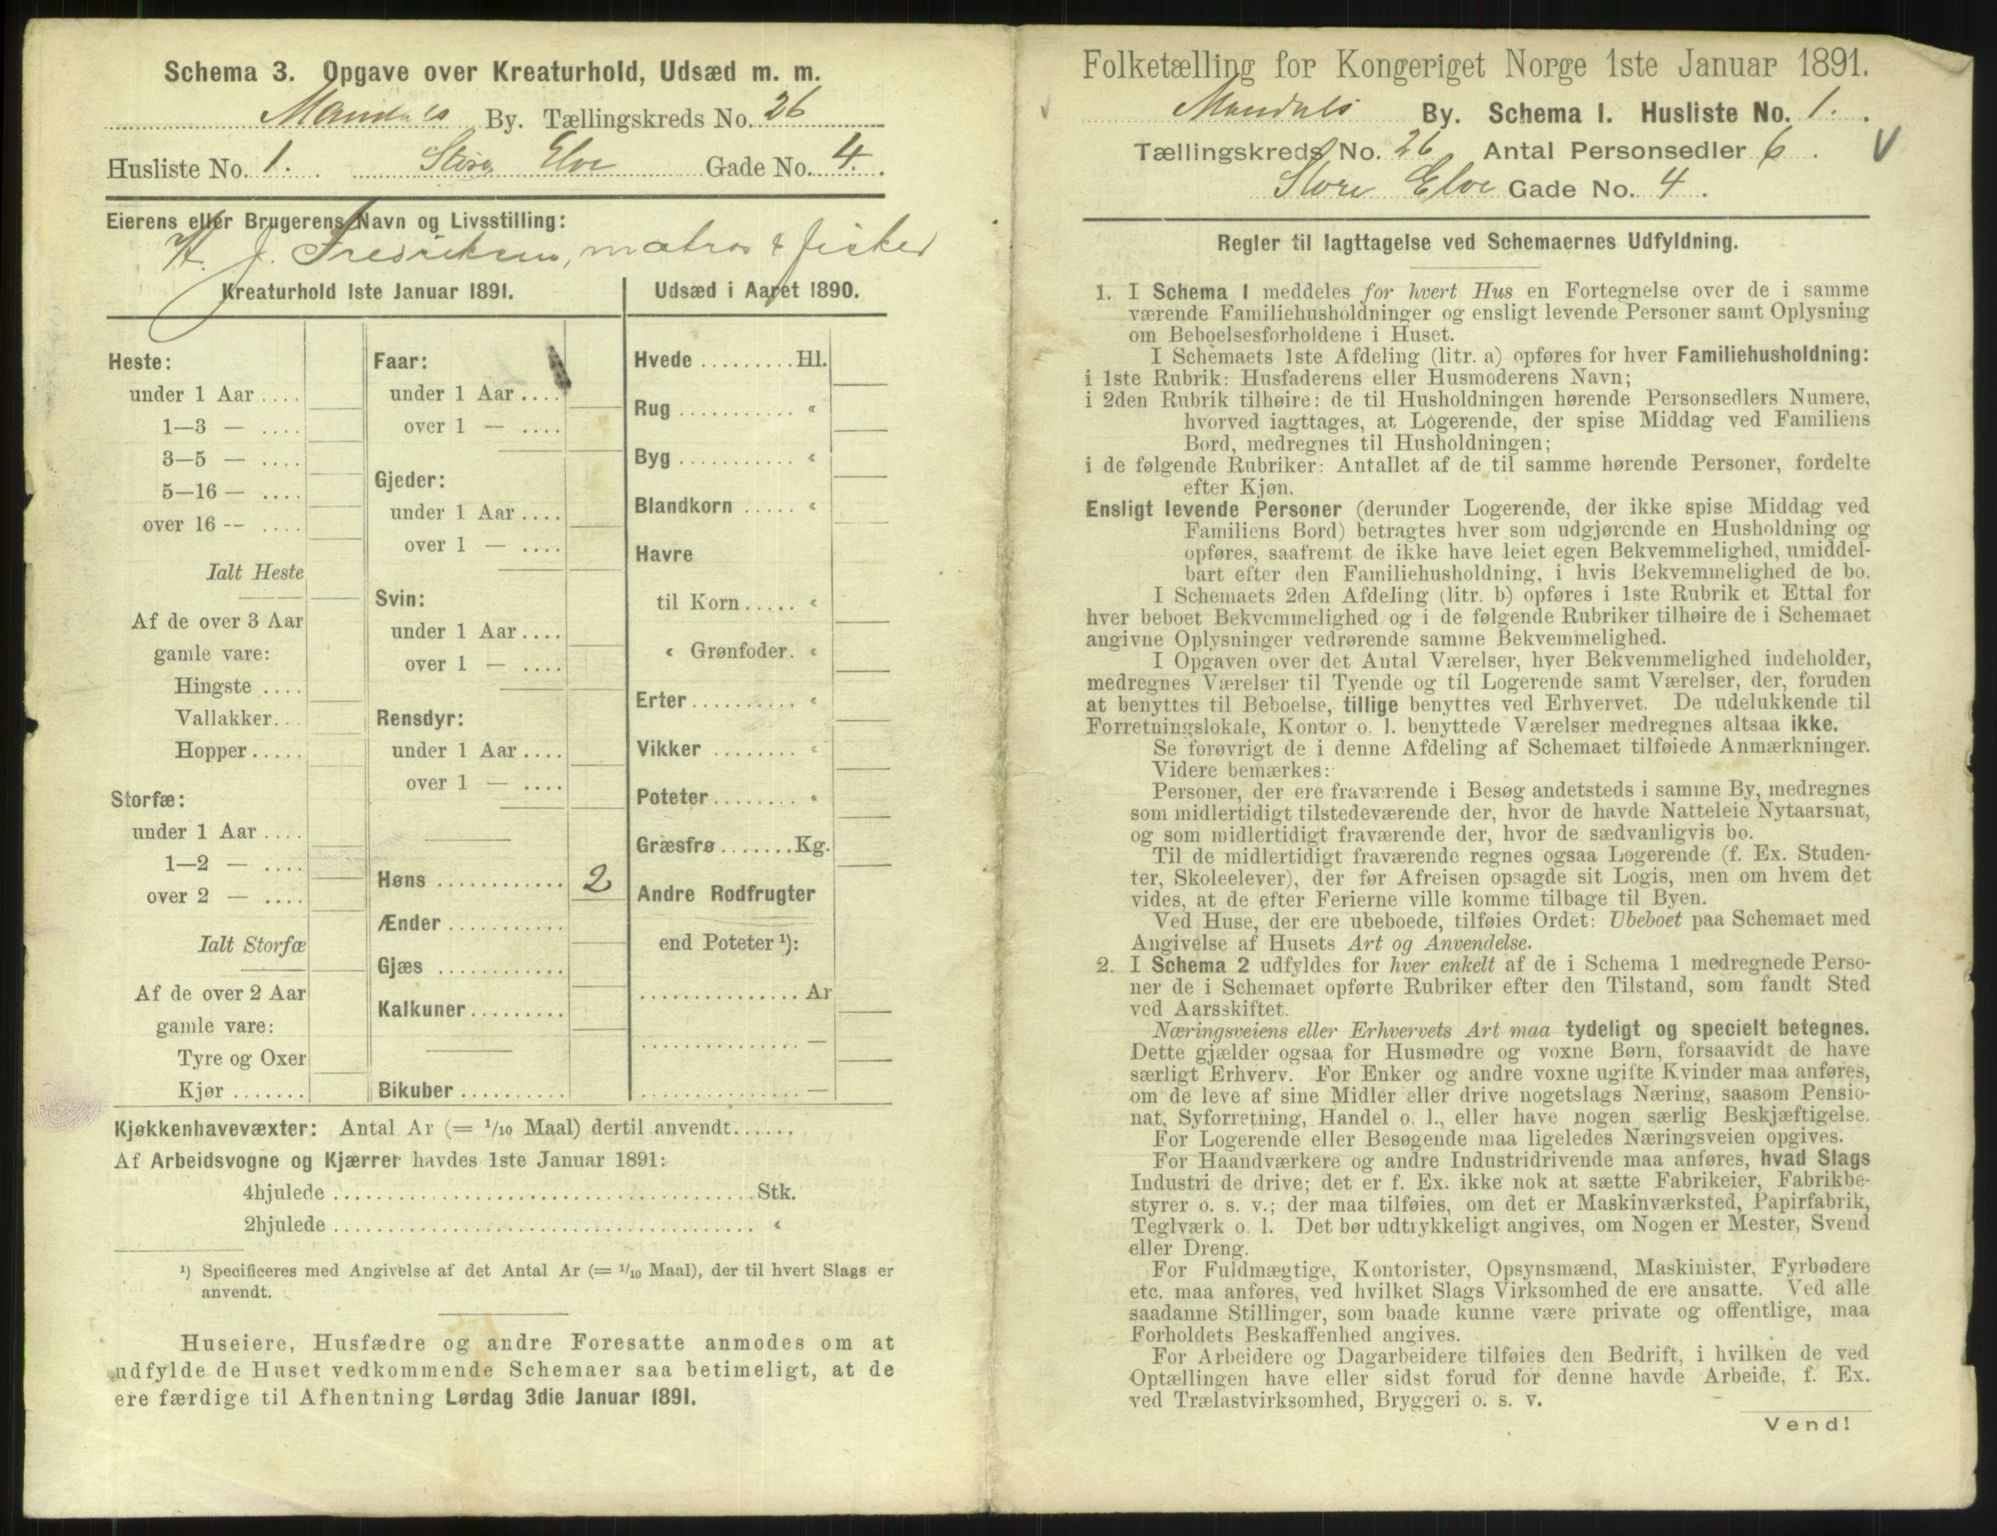 Schema 3. Opgave over Kreaturhold, Udsæd m. m.
Mandals By. Tællingskreds No. 26
Husliste No. 1. Store Elve Gade No. 4.
Eierens eller Brugerens Navn og Livsstilling:
H. J. Fredriksen, matros & fisker
Kreaturhold 1ste Januar 1891.
Heste:
under 1 Aar ....
1—3 — ....
3—5 — ....
5—16 — ....
over 16 -- ....
Ialt Heste
Af de over 3 Aar
gamle vare:
Hingste ....
Vallakker...
Hopper.....
Storfæ:
under 1 Aar ....
1—2 — ....
over 2 — ....
Ialt Storfæ
Af de over 2 Aar
gamle vare:
Tyre og Oxer
Kjør .......
Faar:
under 1 Aar ....
over 1 — ....
Gjeder:
under 1 Aar ....
over 1 — ....
Svin:
under 1 Aar ....
over 1 — ....
Rensdyr:
under 1 Aar ....
over 1 — ....
Høns ............ 2
Ænder ...........
Gjæs ............
Kalkuner.........
Bikuber ..........
Udsæd i Aaret 1890.
Hvede .........Hl.
Rug ........... «
Byg ........... «
Blandkorn ..... «
Havre
til Korn..... «
« Grønfoder. «
Erter .......... «
Vikker ......... «
Poteter........ «
Græsfrø.......Kg.
Andre Rodfrugter
end Poteter ¹):
............... Ar
............... —
............... —
Kjøkkenhavevæxter: Antal Ar (= 1/10 Maal) dertil anvendt......
Af Arbeidsvogne og Kjærrer havdes 1ste Januar 1891:
4hjulede ........................................Stk.
2hjulede ........................................ «
¹) Specificeres med Angivelse af det Antal Ar (= 1/10 Maal), der til hvert Slags er
anvendt.
Huseiere, Husfædre og andre Foresatte anmodes om at
udfylde de Huset vedkommende Schemaer saa betimeligt, at de
ere færdige til Afhentning Lørdag 3die Januar 1891.
Folketælling for Kongeriget Norge 1ste Januar 1891.
Mandals By. Schema I. Husliste No. 1.
Tællingskreds No. 26 Antal Personsedler 6.
Store Elve Gade No. 4.
Regler til Iagttagelse ved Schemaernes Udfyldning.
1. I Schema 1 meddeles for hvert Hus en Fortegnelse over de i samme
værende Familiehusholdninger og ensligt levende Personer samt Oplysning
om Beboelsesforholdene i Huset.
I Schemaets 1ste Afdeling (litr. a) opføres for hver Familiehusholdning:
i 1ste Rubrik: Husfaderens eller Husmoderens Navn;
i 2den Rubrik tilhøire: de til Husholdningen hørende Personsedlers Numere,
hvorved iagttages, at Logerende, der spise Middag ved Familiens
Bord, medregnes til Husholdningen;
i de følgende Rubriker: Antallet af de til samme hørende Personer, fordelte
efter Kjøn.
Ensligt levende Personer (derunder Logerende, der ikke spise Middag ved
Familiens Bord) betragtes hver som udgjørende en Husholdning og
opføres, saafremt de ikke have leiet egen Bekvemmelighed, umiddel-
bart efter den Familiehusholdning, i hvis Bekvemmelighed de bo.
I Schemaets 2den Afdeling (litr. b) opføres i 1ste Rubrik et Ettal for
hver beboet Bekvemmelighed og i de følgende Rubriker tilhøire de i Schemaet
angivne Oplysninger vedrørende samme Bekvemmelighed.
I Opgaven over det Antal Værelser, hver Bekvemmelighed indeholder,
medregnes Værelser til Tyende og til Logerende samt Værelser, der, foruden
at benyttes til Beboelse, tillige benyttes ved Erhvervet. De udelukkende til
Forretningslokale, Kontor o. l. benyttede Værelser medregnes altsaa ikke.
Se forøvrigt de i denne Afdeling af Schemaet tilføiede Anmærkninger.
Videre bemærkes:
Personer, der ere fraværende i Besøg andetsteds i samme By, medregnes
som midlertidigt tilstedeværende der, hvor de havde Natteleie Nytaarsnat,
og som midlertidigt fraværende der, hvor de sædvanligvis bo.
Til de midlertidigt fraværende regnes ogsaa Logerende (f. Ex. Studen-
ter, Skoleelever), der før Afreisen opsagde sit Logis, men om hvem det
vides, at de efter Ferierne ville komme tilbage til Byen.
Ved Huse, der ere ubeboede, tilføies Ordet: Ubeboet paa Schemaet med
Angivelse af Husets Art og Anvendelse.
2. I Schema 2 udfyldes for hver enkelt af de i Schema 1 medregnede Perso-
ner de i Schemaet opførte Rubriker efter den Tilstand, som fandt Sted
ved Aarsskiftet.
Næringsveiens eller Erhvervets Art maa tydeligt og specielt betegnes.
Dette gjælder ogsaa for Husmødre og voxne Børn, forsaavidt de have
særligt Erhverv. For Enker og andre voxne ugifte Kvinder maa anføres,
om de leve af sine Midler eller drive nogetslags Næring, saasom Pensio-
nat, Syforretning, Handel o. l., eller have nogen særlig Beskjæftigelse.
For Logerende eller Besøgende maa ligeledes Næringsveien opgives.
For Haandværkere og andre Industridrivende maa anføres, hvad Slags
Industri de drive; det er f. Ex. ikke nok at sætte Fabrikeier, Fabrikbe-
styrer o. s. v.; der maa tilføies, om det er Maskinværksted, Papirfabrik,
Teglværk o. l. Det bør udtrykkeligt angives, om Nogen er Mester, Svend
eller Dreng.
For Fuldmægtige, Kontorister, Opsynsmænd, Maskinister, Fyrbødere
etc. maa anføres, ved hvilket Slags Virksomhed de ere ansatte. Ved alle
saadanne Stillinger, som baade kunne være private og offentlige, maa
Forholdets Beskaffenhed angives.
For Arbeidere og Dagarbeidere tilføies den Bedrift, i hvilken de ved
Optællingen have eller sidst forud for denne havde Arbeide, f. Ex.
ved Trælastvirksomhed, Bryggeri o. s. v.
Vend!